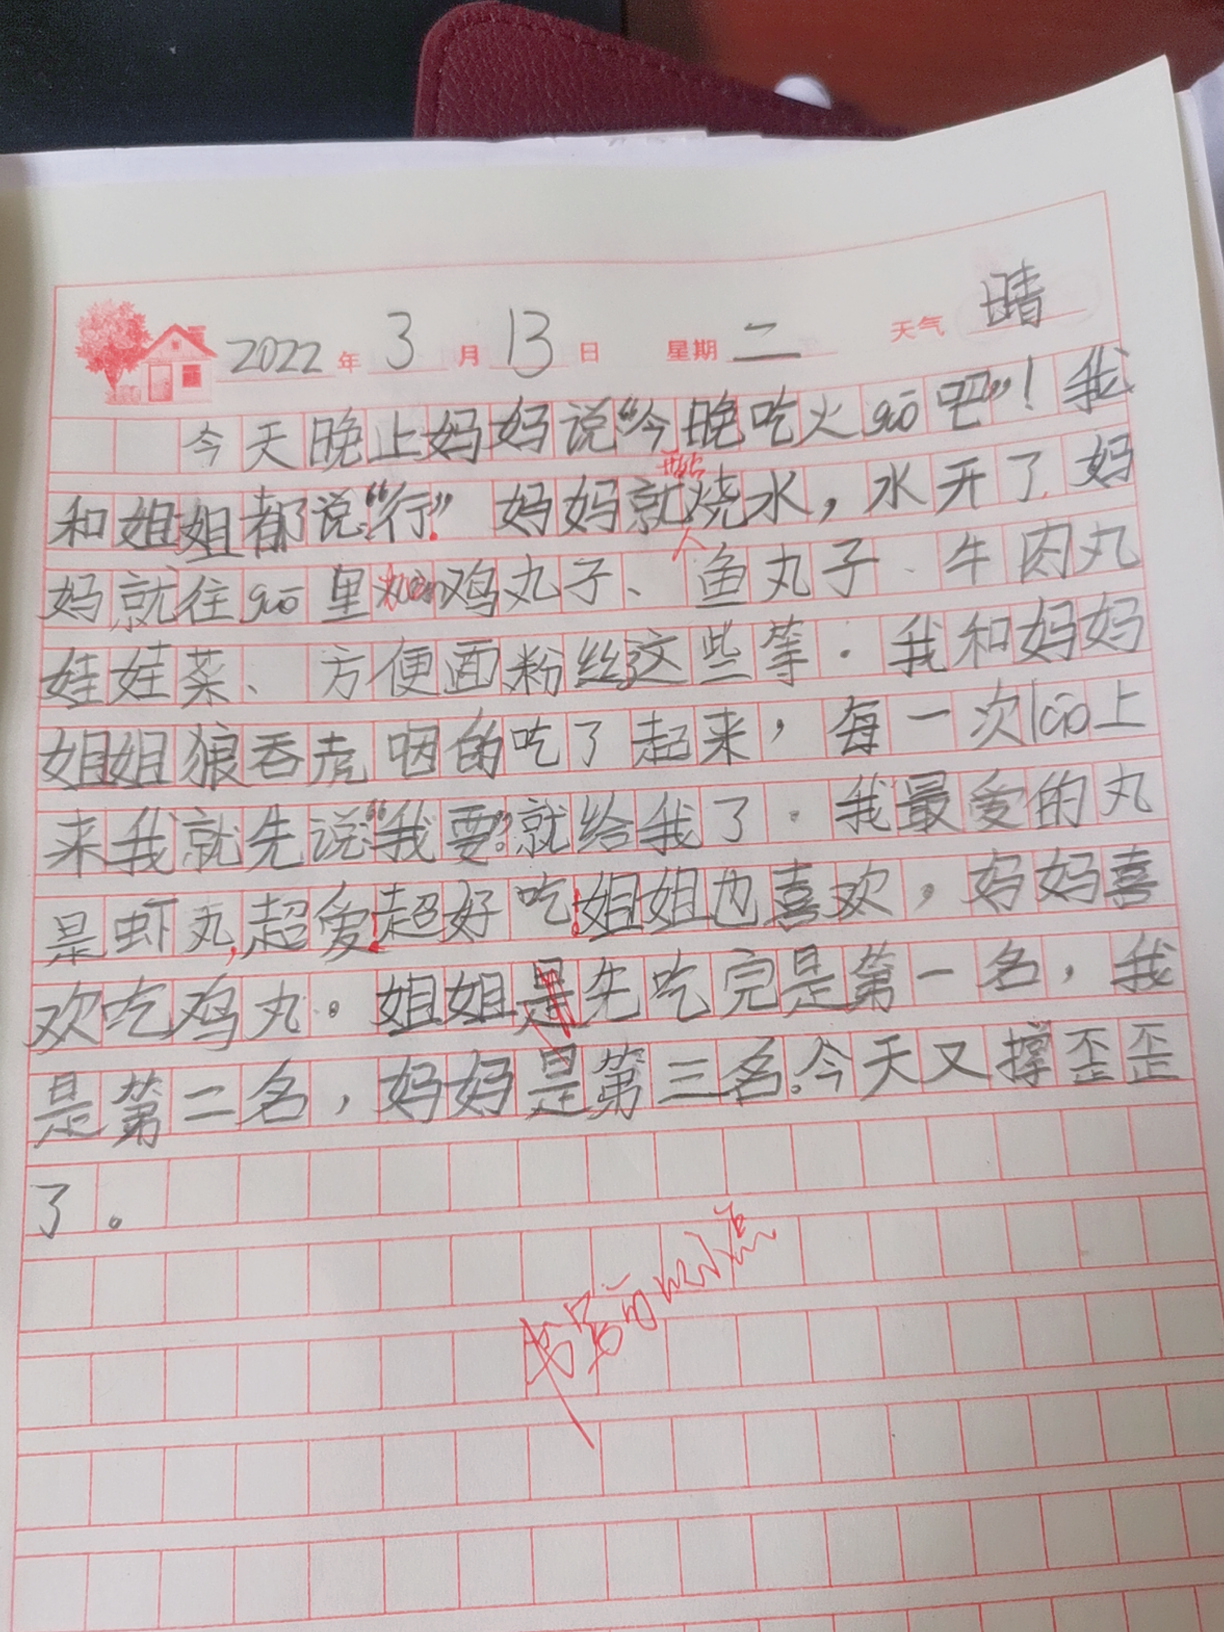 2022年 3月 13日 星期二 天气 晴
今天晚上妈妈说“今晚吃火guō吧”！我
和姐姐都说“行”妈妈就开始烧水，水开了妈
妈就往guō里加鸡丸子、鱼丸子、牛肉丸
娃娃菜、方便面粉丝这些等.我和妈妈
姐姐狼吞虎咽的吃了起来，每一次lāo上
来我就先说“我要”就给我了.我最爱的丸
是虾丸，超爱！超好吃！姐姐也喜欢，妈妈喜
欢吃鸡丸。姐姐是先吃完是第一名，我
是第二名，妈妈是第三名。今天又撑歪歪
了。